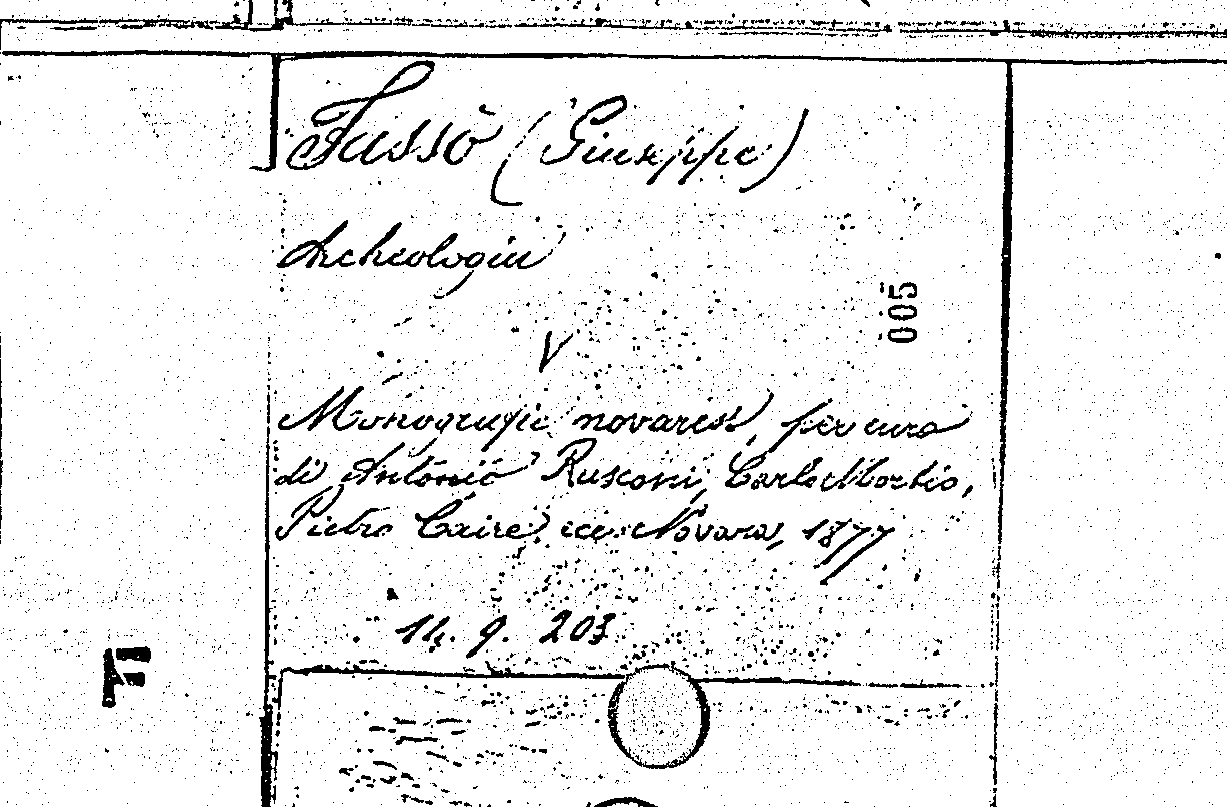 Fassò (Giuseppe)
Archeologia
005
V
Monografie novaresi, per cura
di Antonio Rusconi, Carlo Morbio,
Pietro Caire ecc. Novara, 1877
14. 9. 203
F